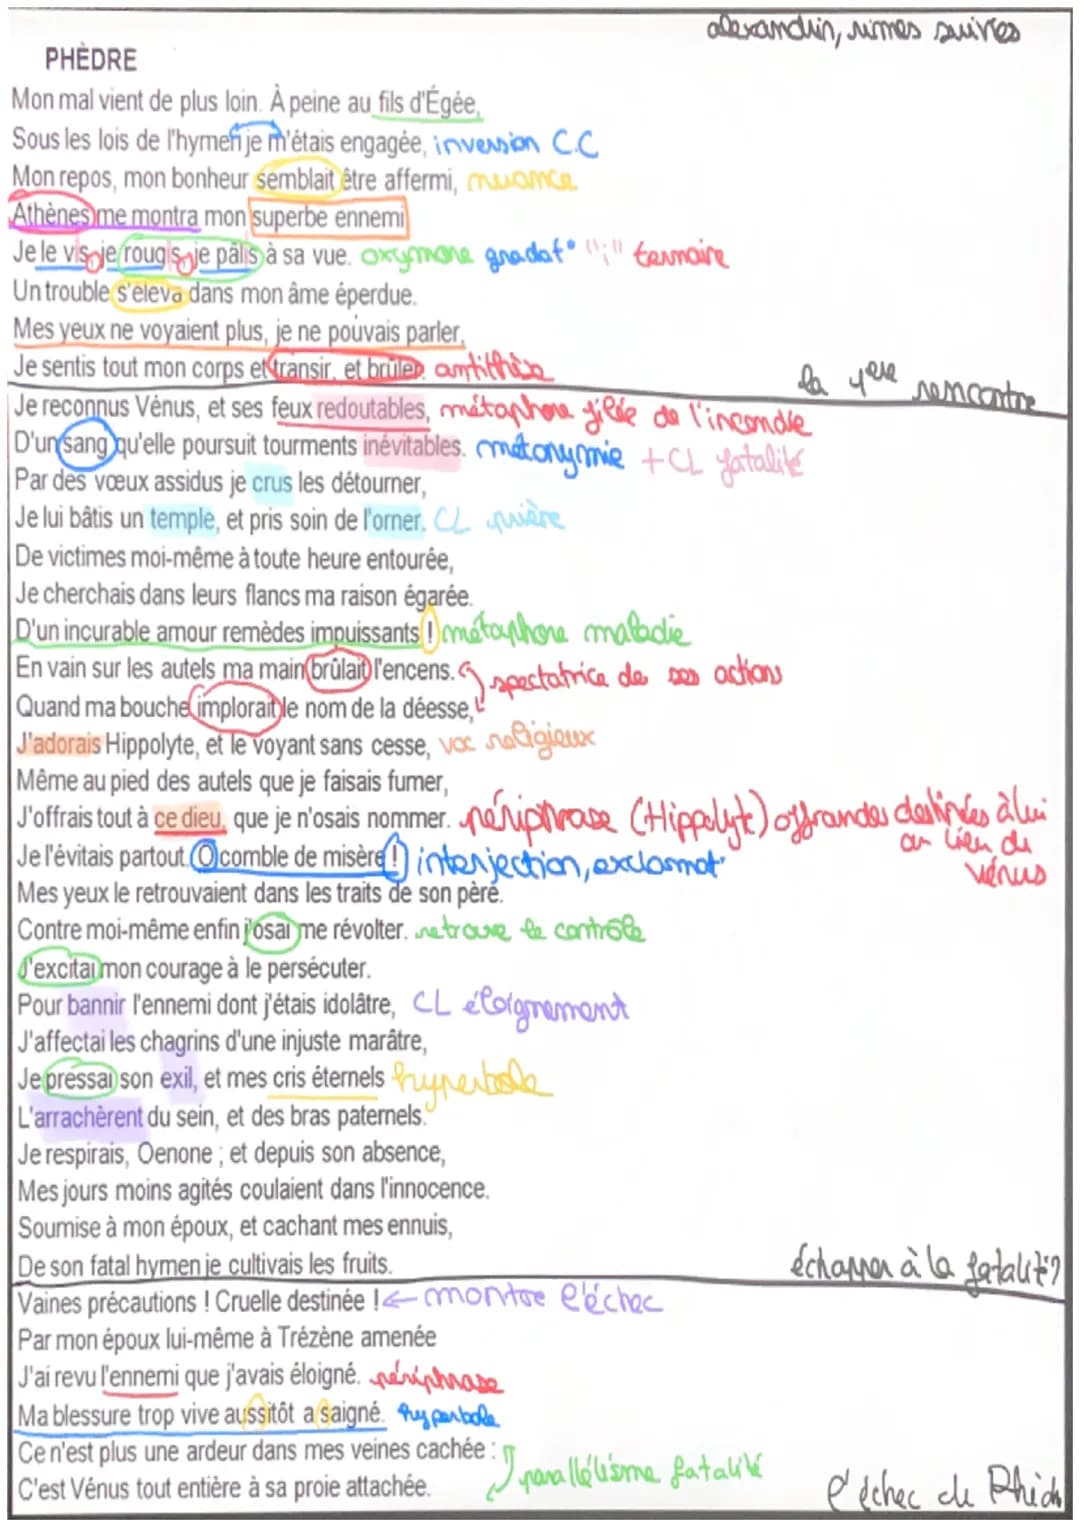 alexandrin, rimes suivies
PHÈDRE
Mon mal vient de plus loin. À peine au fils d'Égée,
Sous les lois de l'hymen je m'étais engagée, inversion C.C
Mon repos, mon bonheur semblait être affermi, nuance
Athènes me montra mon superbe ennemi
Je le vis, je rougis, je pâlis à sa vue. oxymore gradat° ";" ternaire
Un trouble s'éleva dans mon âme éperdue.
Mes yeux ne voyaient plus, je ne pouvais parler,
Je sentis tout mon corps et transir, et brûler. antithèse
la 1ere rencontre
Je reconnus Vénus, et ses feux redoutables, métaphore filée de l'incendie
D'un sang qu'elle poursuit tourments inévitables. métonymie + CL fatalité
Par des vœux assidus je crus les détourner,
Je lui bâtis un temple, et pris soin de l'orner. CL prière
De victimes moi-même à toute heure entourée,
Je cherchais dans leurs flancs ma raison égarée.
D'un incurable amour remèdes impuissants ! métaphore maladie
En vain sur les autels ma main brûlait l'encens. spectatrice de ses actions
Quand ma bouche implorait le nom de la déesse,
J'adorais Hippolyte, et le voyant sans cesse, voc religieux
Même au pied des autels que je faisais fumer,
J'offrais tout à ce dieu, que je n'osais nommer. périphrase (Hippolyte) offrandes destinées à lui
au lieu de
Je l'évitais partout. Ô comble de misère ! interjection, exclamat°
vénus
Mes yeux le retrouvaient dans les traits de son père.
Contre moi-même enfin j'osai me révolter. retrouve le contrôle
J'excitai mon courage à le persécuter.
Pour bannir l'ennemi dont j'étais idolâtre, CL éloignement
J'affectai les chagrins d'une injuste marâtre,
Je pressai son exil, et mes cris éternels hyperbole
L'arrachèrent du sein, et des bras paternels.
Je respirais, Oenone ; et depuis son absence,
Mes jours moins agités coulaient dans l'innocence.
Soumise à mon époux, et cachant mes ennuis,
De son fatal hymen je cultivais les fruits.
échapper à la fatalité?
Vaines précautions ! Cruelle destinée ! ← montre l'échec
Par mon époux lui-même à Trézène amenée
J'ai revu l'ennemi que j'avais éloigné. périphrase
Ma blessure trop vive aussitôt a saigné. hyperbole
Ce n'est plus une ardeur dans mes veines cachée :
parallélisme fatalité
C'est Vénus tout entière à sa proie attachée.
l'échec de